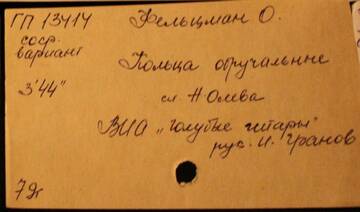 ГП 13414
Фельцман О.
соср.
вариант
Кольца обручальные
3'44"
сл. Н Олева
ВИА "Голубые гитары"
рук. И. Гранов
79г